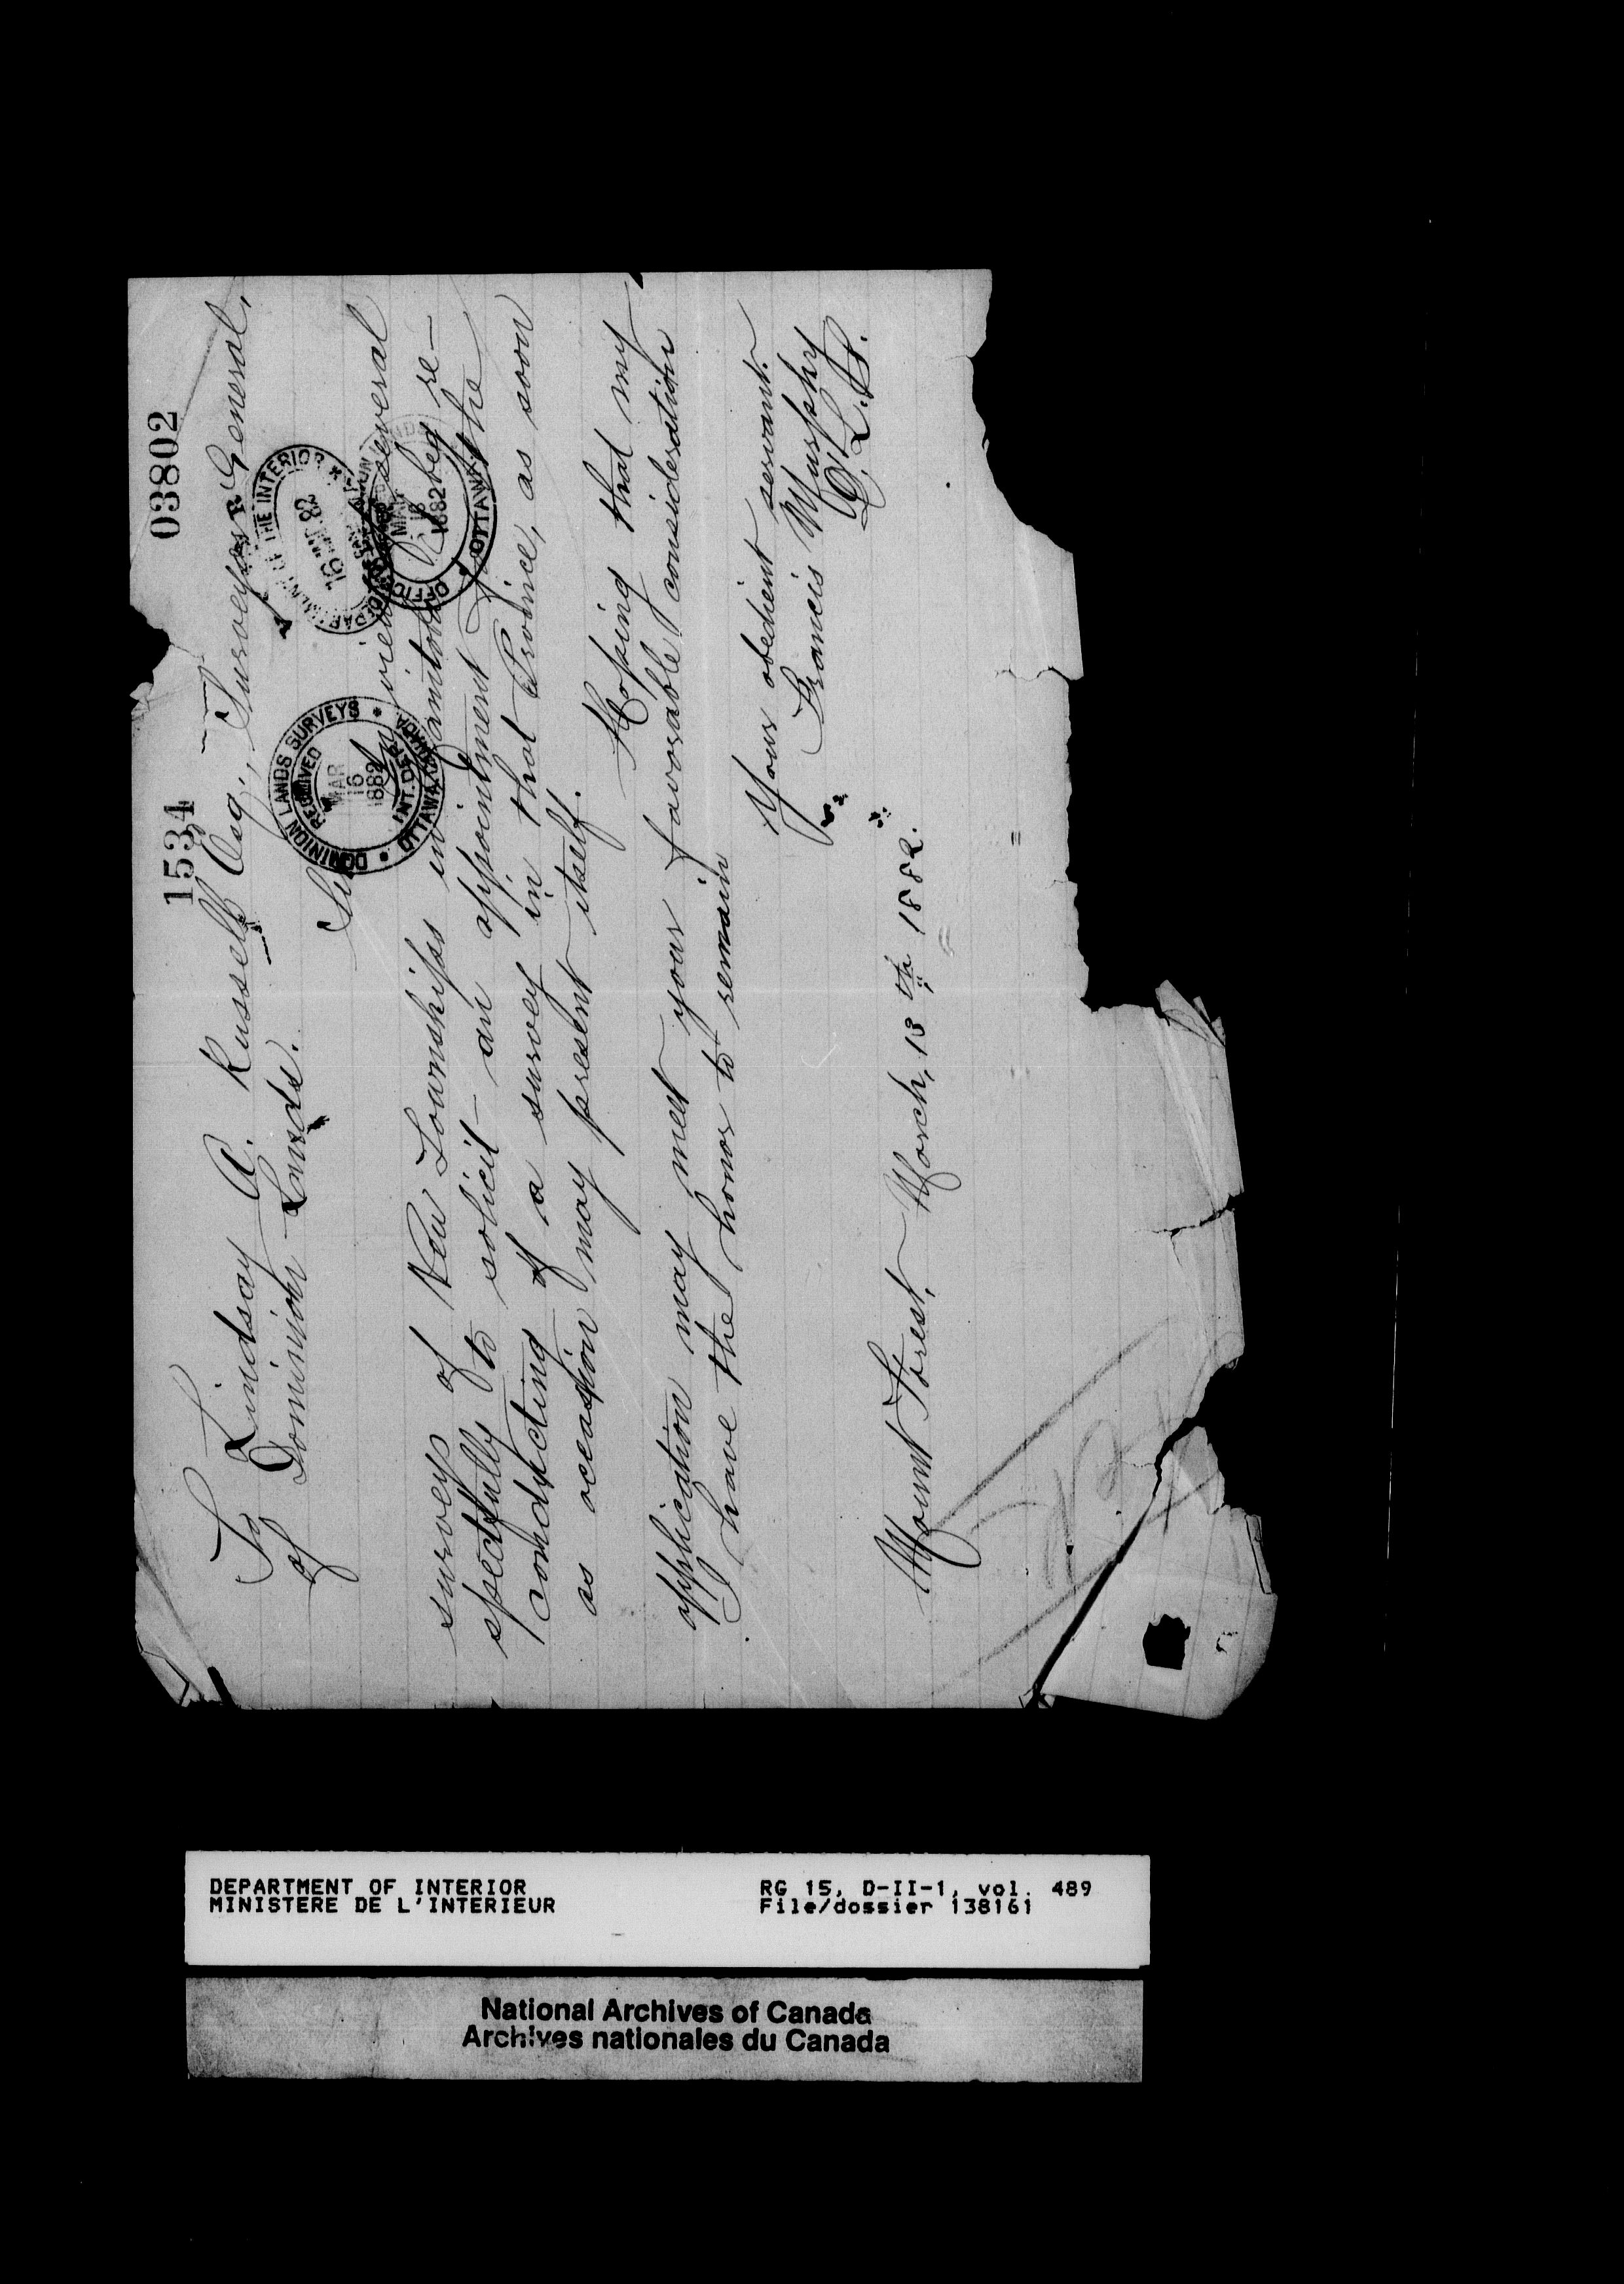 1534 03802
To Lindsay A. Russell Esq., Surveyor General,
of Dominion Lands.
DOMINION LANDS SURVEYS
RECEIVED
MAR
16
1882
INT. DEP.
OTTAWA
DEPARTMENT OF THE INTERIOR
15 MAR 82
MAR
16
1882
OTTAWA
Sir
In view several
surveys of New Townships in Manitoba I beg re-
spectfully to solicit an appointment for the
conducting of a survey in that Province, as soon
as occasion may present itself.
Hoping that my
application may meet your favorable consideration
I have the honor to remain
Your obedient servant.
Francis Murphy
D.L.S.
Mount Forest, March, 13th 1882.
DEPARTMENT OF INTERIOR RG 15, D-II-1, vol. 489
MINISTERE DE L'INTERIEUR File/dossier 138161
National Archives of Canada
Archives nationales du Canada